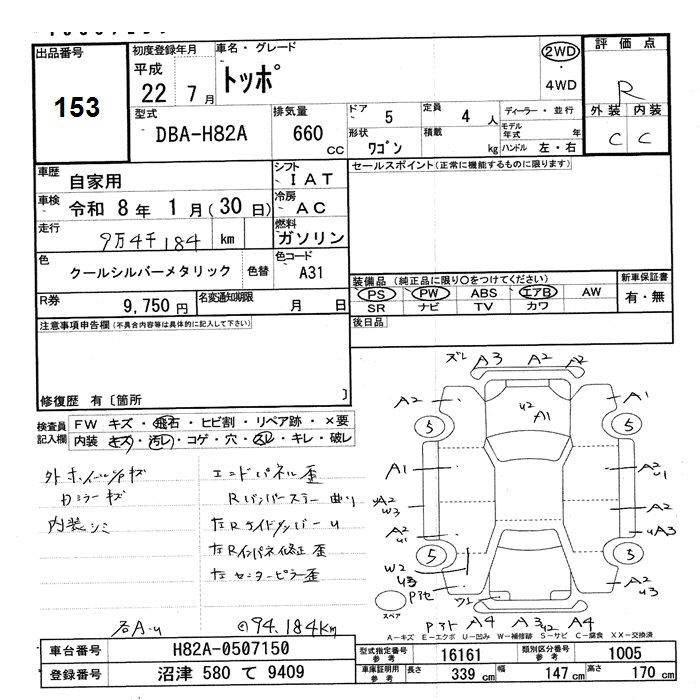 出品番号
153
初度登録年月
平成
22 7 月
車名・グレード
トッポ
2WD
・
4WD
評価点
R
外装 内装
C C
型式
DBA-H82A
排気量
660 CC
ドア 5
定員 4 人
形状 ワゴン
積載 kg
ディーラー・並行
モデル年式 年
ハンドル 左・右
車歴 自家用
シフト IAT
車検 令和 8 年 1 月 (30 日)
冷房 AC
走行 9万4千184 km
燃料 ガソリン
色 クールシルバーメタリック 色替
色コード A31
R券 9,750 円
名変通知期限 月 日
セールスポイント(正常に機能するものに限ります)
装備品 (純正品に限り○をつけてください)
PS PW ABS エアB AW
SR ナビ TV カワ
新車保証書
有・無
後日品
注意事項申告欄(不具合内容等は具体的に記入して下さい)
修復歴 有〔箇所 〕
検査員記入欄
FW キズ・飛石・ヒビ割・リペア跡・×要
内装 キズ・汚レ・コゲ・穴・スレ・キレ・破レ
外ホイールキズ
Dミラーキズ
内装シミ
エンドパネル歪
Rバンパーステー曲り
左RサイドメンバーU
左Rインパネ修正歪
左センターピラー歪
石A-U
◎94,184Km
ズレ A3 A2 A2
A2 A1
U2
A1
5 5
A1 A2
U1
A2
W3
A2
U1
UA3
5 5
W2
U3
A2
U3
ワレ
スペア
A4 A3 U2 A4
A-キズ E-エクボ U-凹み W-補修跡 S-サビ C-腐食 XX-交換済
車台番号 H82A-0507150
登録番号 沼津 580 て 9409
型式指定番号 参考 16161
類別区分番号 参考 1005
車庫証明用 参考 長さ 339 cm 幅 147 cm 高さ 170 cm